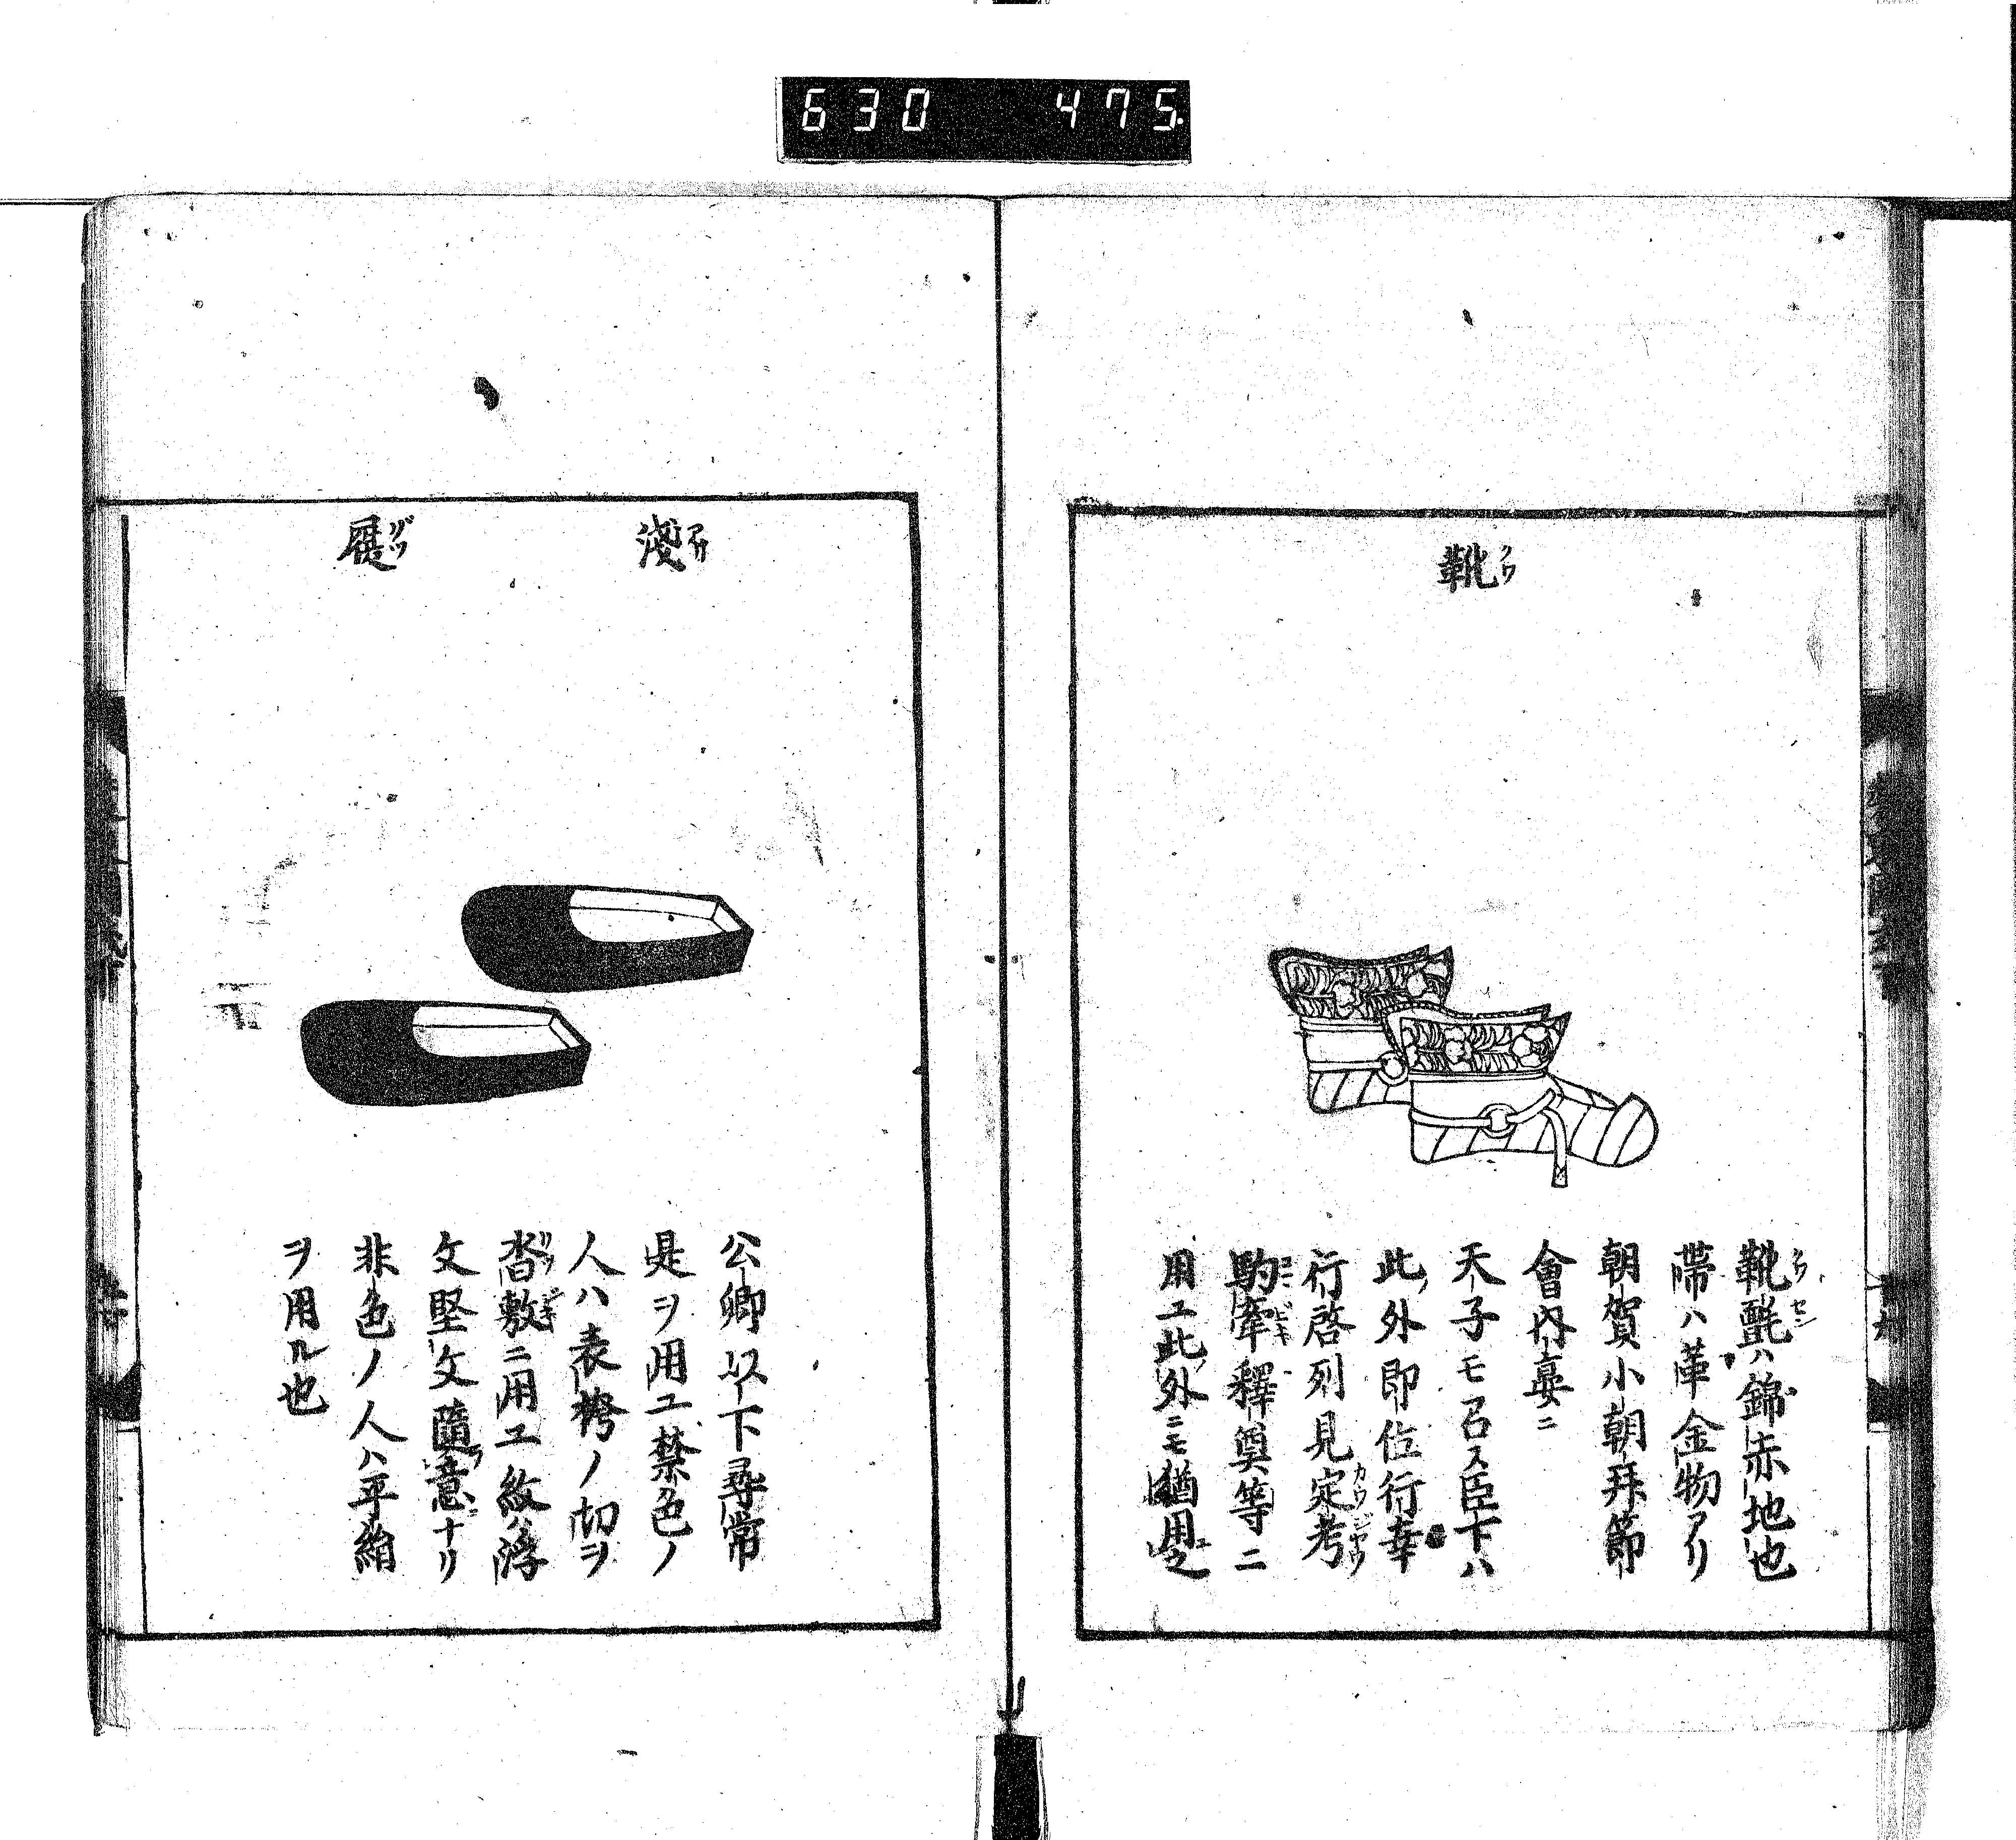 630 475.
靴
靴氈ハ錦赤地也
帶ハ革金物アリ
朝賀小朝拜節
會内宴ニ
天子モ召ス臣下ハ
此外即位行幸
行啓列見定考
駒牽釋奠等ニ
用ユ此外ニモ猶用之
淺
履
公卿以下尋常
是ヲ用ユ禁色ノ
人ハ表袴ノ切ヲ
沓敷ニ用ユ紋ハ浮
文堅文隨意ナリ
非色ノ人ハ平絹
ヲ用ル也